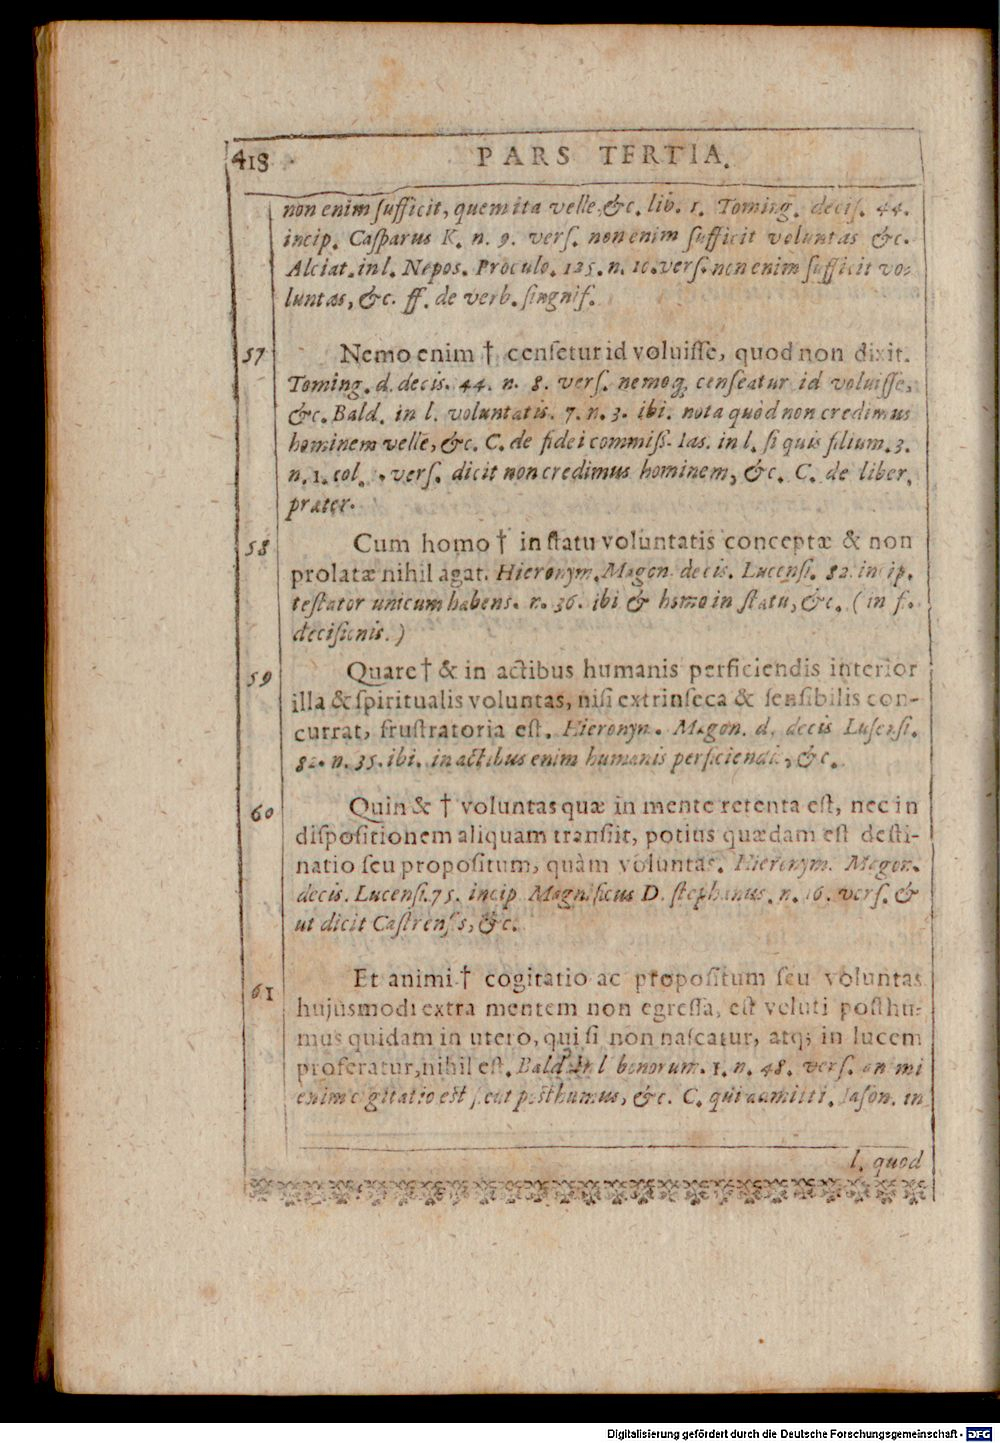 418
PARS TERTIA.
non enim sufficit, quem ita velle, &c. lib. 1. Toming. decis. 44.
incip. Casparus K. n. 9. vers. non enim sufficit voluntas &c.
Alciat. in l. Nepos. Proculo. 125. n. 10. vers. non enim sufficit vo-
luntas, &c. ff. de verb. singnif.
57 Nemo enim † censetur id voluisse, quod non dixit.
Toming. d. decis. 44. n. 8. vers. nemoq; censeatur id voluisse,
&c. Bald. in l. voluntatis. 7. n. 3. ibi. nota quòd non credimus
hominem velle, &c. C. de fidei commiss. Ias. in l. si quis filium. 3.
n. 1. col. , vers. dicit non credimus hominem, &c. C. de liber.
prater.
58 Cum homo † in statu voluntatis conceptæ & non
prolatæ nihil agat. Hieronym. Magon. decis. Lucensi. 82. incip.
testator unicum habens. n. 36. ibi & homo in statu, &c. ( in f.
decisionis. )
59 Quare † & in actibus humanis perficiendis interior
illa & spiritualis voluntas, nisi extrinseca & sensibilis con-
currat, frustratoria est. Hieronyn. Magon. d. decis Lusensi.
82. n. 35. ibi. in actibus enim humanis perficiendi, &c.
60 Quin & † voluntas quæ in mente retenta est, nec in
dispositionem aliquam transiit, potius quædam est desti-
natio seu propositum, quàm voluntas. Hieronym. Magon.
decis. Lucensi. 75. incip. Magnificus D. stephanus. n. 16. vers. &
ut dicit Castrensis, &c.
61 Et animi † cogitatio ac propositum seu voluntas
hujusmodi extra mentem non egressa, est veluti posthu-
mus quidam in utero, qui si non nascatur, atq; in lucem
proferatur, nihil est. Bald. in l bonorum. 1. n. 48. vers. an mi
enim cogitatio est sicut posthumus, &c. C. qui admitti. Iason. in
l. quod
Digitalisierung gefördert durch die Deutsche Forschungsgemeinschaft - DFG